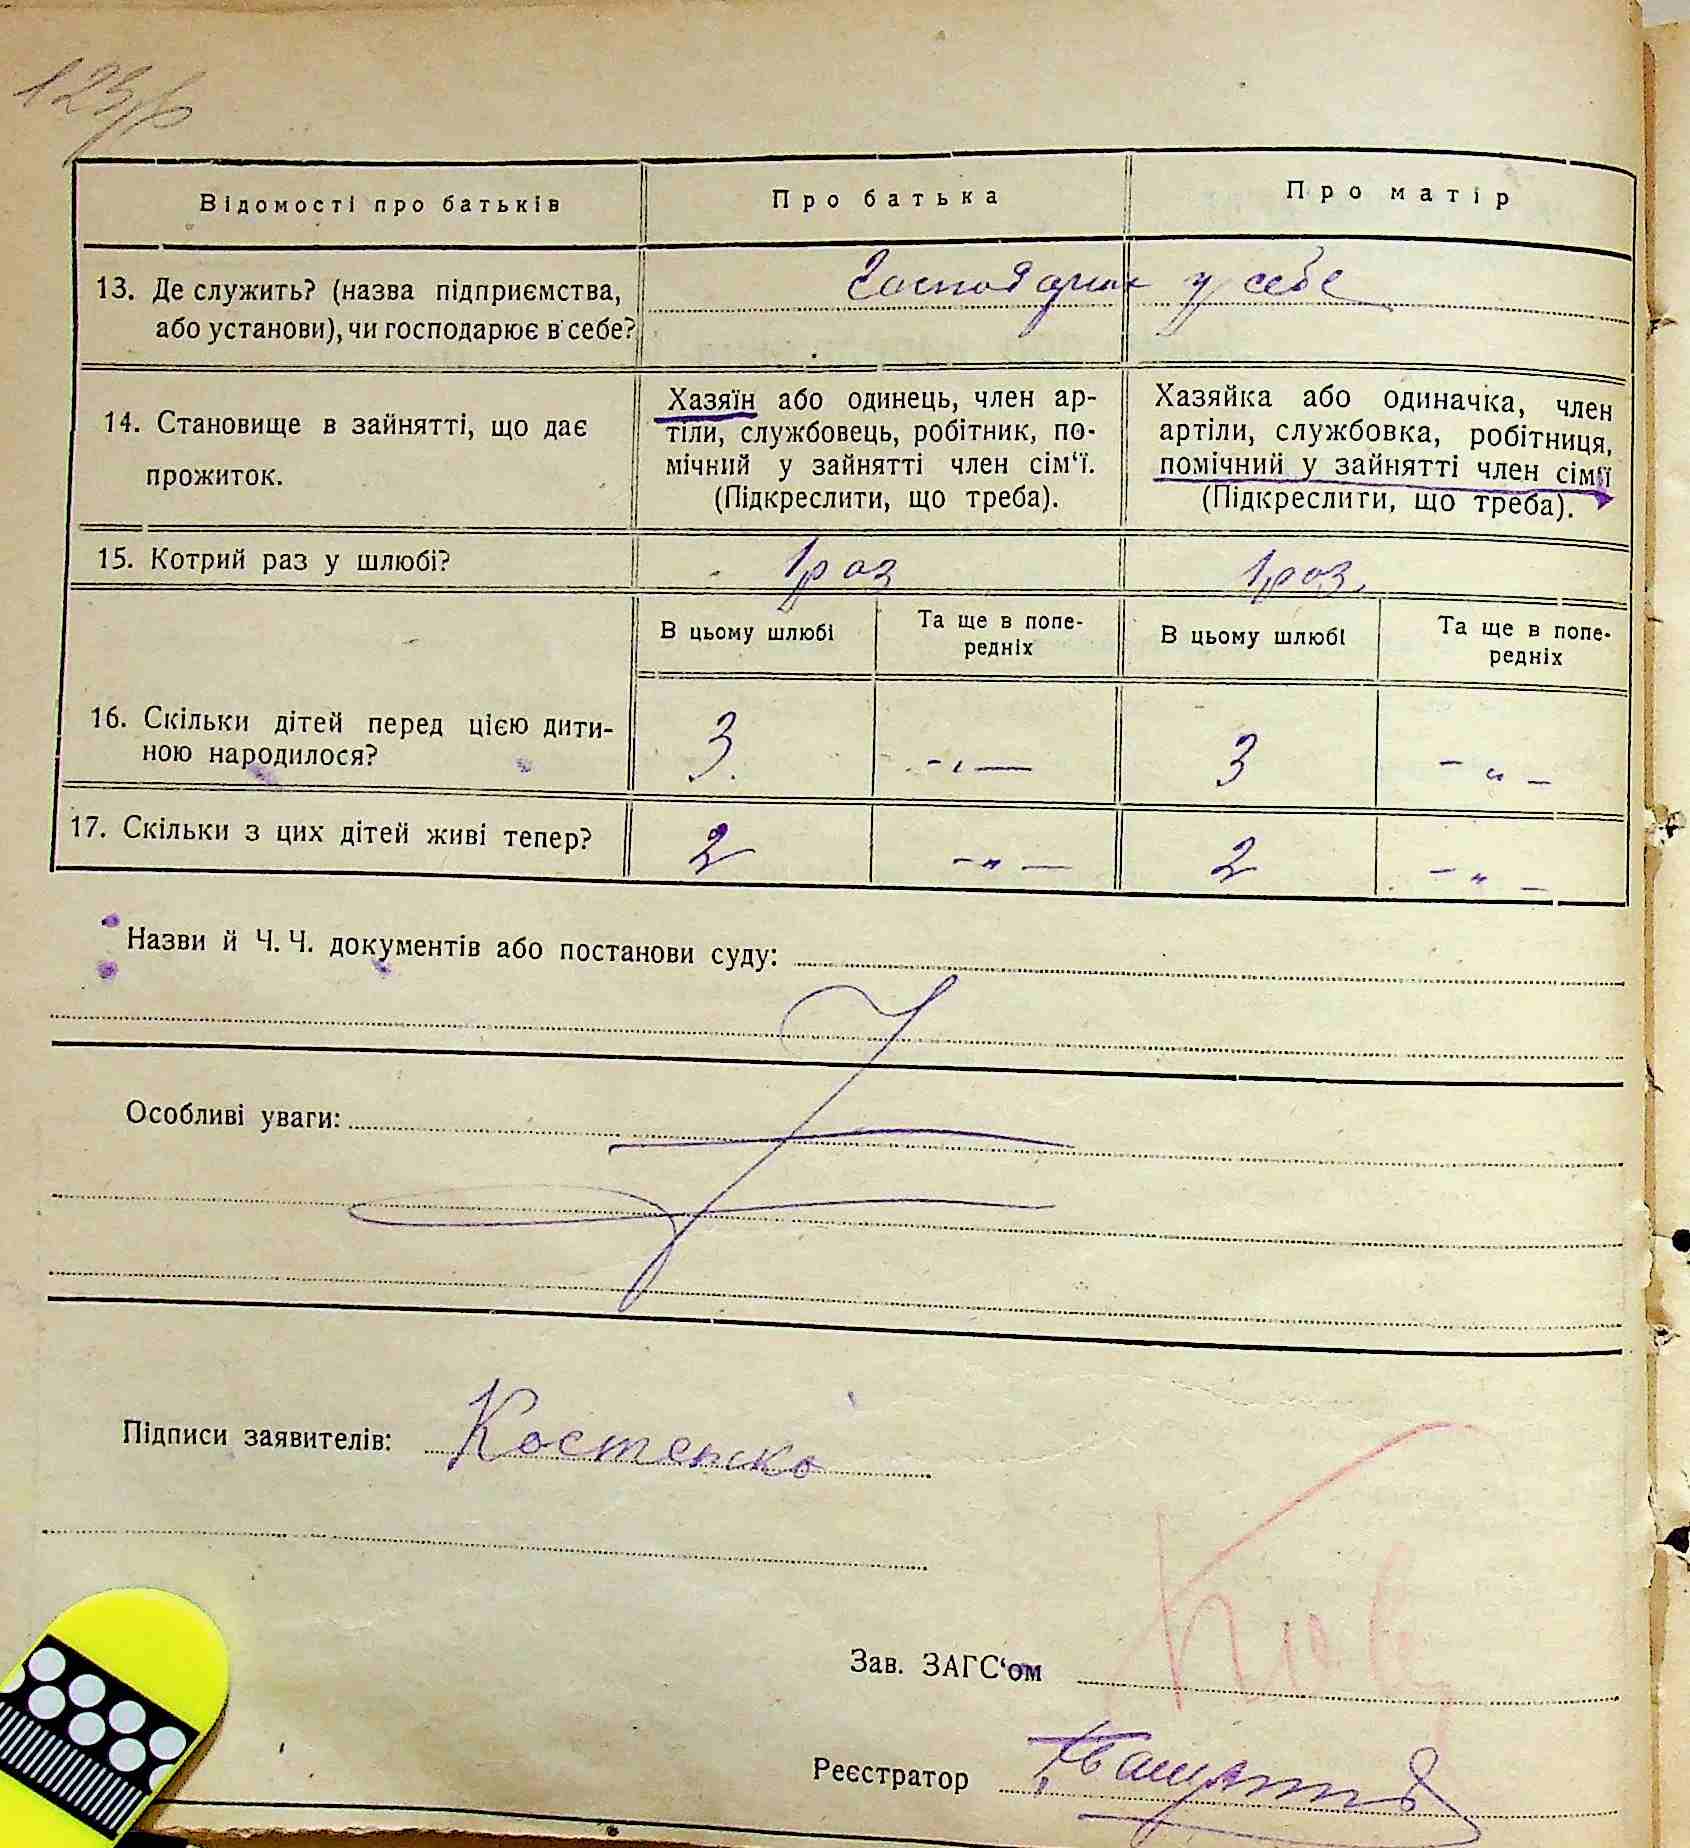 Відомості про батьків
Про батька
Про матір
13. Де служить? (назва підприємства,
або установи), чи господарює в себе?
у себе
14. Становище в зайнятті, що дає
прожиток.
Хазяїн або одинець, член ар-
тіли, службовець, робітник, по-
мічний у зайнятті член сім‘ї.
(Підкреслити, що треба).
Хазяйка або одиначка, член
артіли, службовка, робітниця,
помічний у зайнятті член сім‘ї
(Підкреслити, що треба).
15. Котрий раз у шлюбі?
1 раз
1 раз.
В цьому шлюбі
Та ще в попе-
редніх
В цьому шлюбі
Та ще в попе-
редніх
16. Скільки дітей перед цією дити-
ною народилося?
3.
- „ —
3
- „ -
17. Скільки з цих дітей живі тепер?
2
- „ —
2
- „ -
Назви й Ч. Ч. документів або постанови суду:
Особливі уваги:
Підписи заявителів: Костенко
Зав. ЗАГС‘ом
Реєстратор